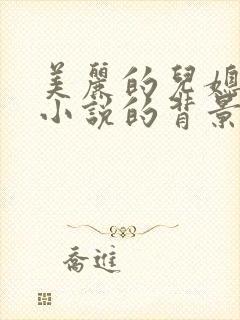 美麗的兒媳
小說的背景
喬進